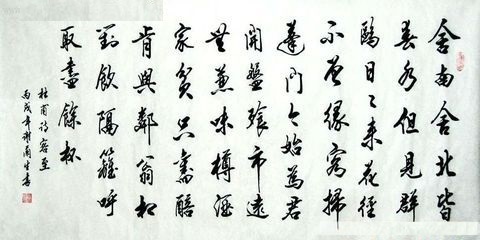 舍南舍北皆
春水但見群
鷗日々来花徑
不曾緣客掃
蓬門今始為君
開盤飧市遠
無兼味樽酒
家貧只舊醅
肯與鄰翁相
對飲隔籬呼
取盡餘杯
杜甫詩客至
丙戌年謝書